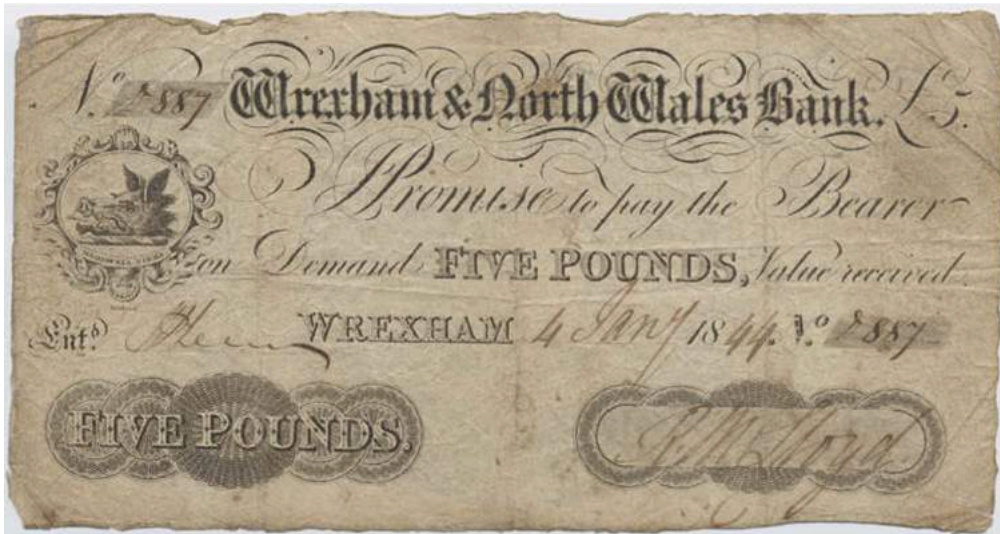 No. £887 Wrexham & North Wales Bank. £5.
I Promise to pay the Bearer
on Demand FIVE POUNDS, Value received.
Entd. WREXHAM 4 Jany 1844. No. £887
FIVE POUNDS. R. M. Lloyd